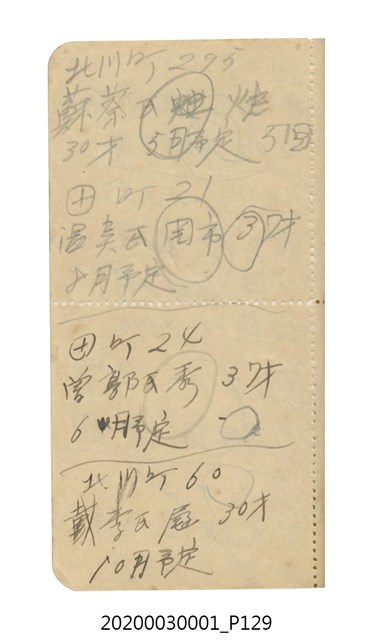 北川町 295
蘇蔡氏
30才 5月予定 3回
田町 21
温吴氏 37才
月予定
田町 24
曾郭氏秀 37才
6月予定
北川町 60
戴李氏 30才
10月予定
20200030001_P129